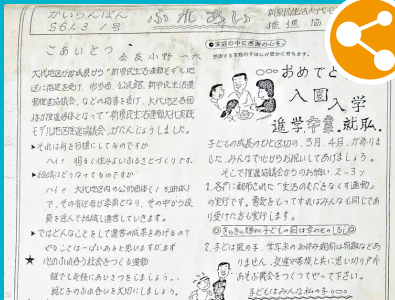 かいらんばん
S61.3 1号
ふれあい
新県民生活大代モ
推進協
ごあいさつ
会長 小野一水
大代地区が各成員から"新県民生活運動モデル地
区に指定を受け、市当局、公民館、新県民生活運
動推進協議会、などの指導を受け、大代地区各団
体が推進母体となって"新県民生活運動大代実践
モデル地区推進協議会"がたんじょうしました。
➤それは何を目標にしてなるのですか
ハイ 明るく住みよいふるさとづくりです。
➤組織はどうなってるのですか
ハイ 大代地区内の公的団体(
で、その
員を選んで組織し運営していきます。
➤ではどんなことをして運営の成果をあげるの?
やることはいっぱいあると思いますがまず
★ 心のふれ合う社会をつくる運動
誰でも気軽にあいさつをしましょう。
親と子のふれ合いを大切にしましょう。
●家庭の中に感謝の心を。
感謝する家庭の子は心が豊かに育ちます。
おめでと
入園入学
進学.卒業.就職.
子どもの成長のひと区切の、3月、4月、が参りま
した。みんなで心からお祝いしてあげましょう。
そこで推進協議会からのお願い、2つ
1.各戸に配布された「生活のむだをなくす運動」
の実行です。勇気をもってすればみんなも同じであ
り受けた方も実行します。
◎きらきら輝く子どもの目は幸わせのしるし◎
2.子どもは風の子、学年末のお休み期間は宿題などあ
りません、友達や家族と共に思い切り戸外
あそぶ機会をつくってやって下さい。
子どもはみんな私の子